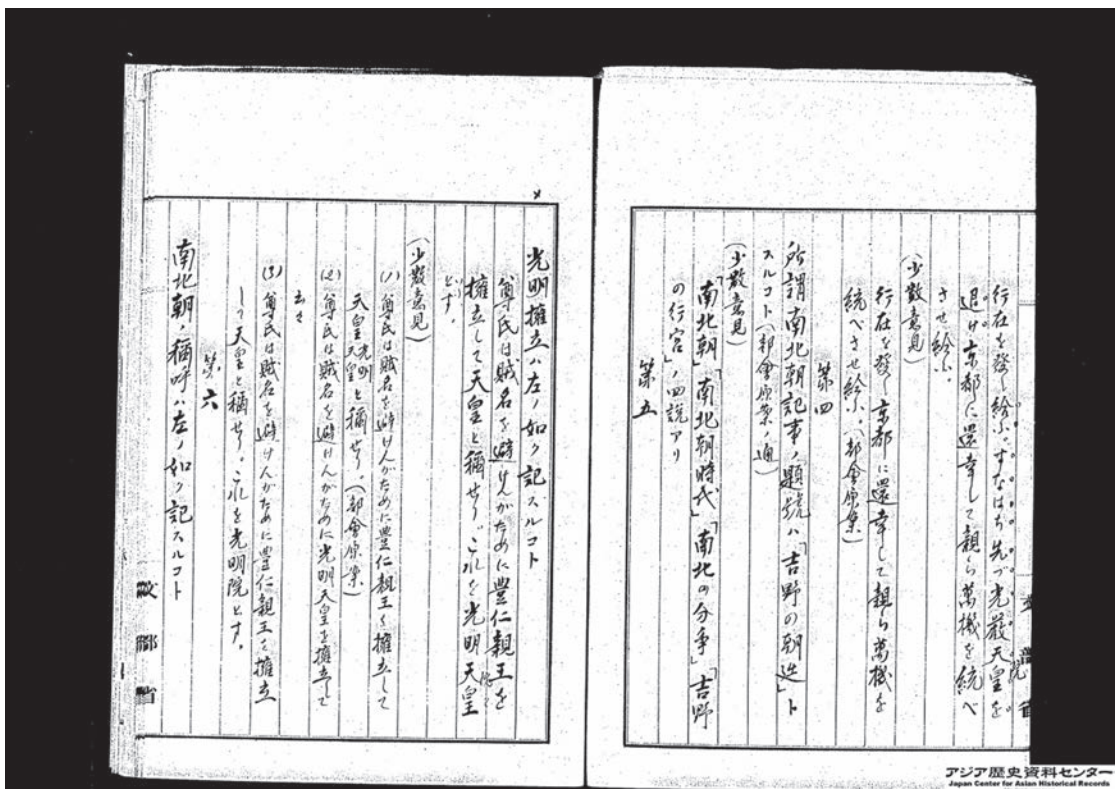 行在を發し給ふ。すなはち先づ光嚴天皇を
院
退け京都に還幸して親ら萬機を統べ
させ給ふ。
(少数意見)
行在を發し京都に還幸して親ら萬機を
統べさせ給ふ、(部會原案)
第四
所謂南北朝記事ノ題號ハ「吉野の朝廷」ト
スルコト(部會原案ノ通)
(少数意見)
「南北朝」「南北朝時代」「南北の分争」「吉野
の行宮」ノ四説アリ
第五
文部省
光明擁立ハ左ノ如ク記スルコト
尊氏は賊名を避けんがために豊仁親王を
擁立して天皇と稱せり。これを光明天皇
とす。
(少数意見)
(1) 尊氏は賊名を避けんがために豊仁親王を擁立して
天皇光明天皇と稱せり。(部會原案)
(2) 尊氏は賊名を避けんがために光明天皇を擁立して
云々
(3) 尊氏は賊名を避けんがために豊仁親王を擁立
して天皇と稱せり。これを光明院とす。
第六
南北朝ノ稱呼ハ左ノ如ク記スルコト
文部省
アジア歴史資料センター
Japan Center for Asian Historical Records